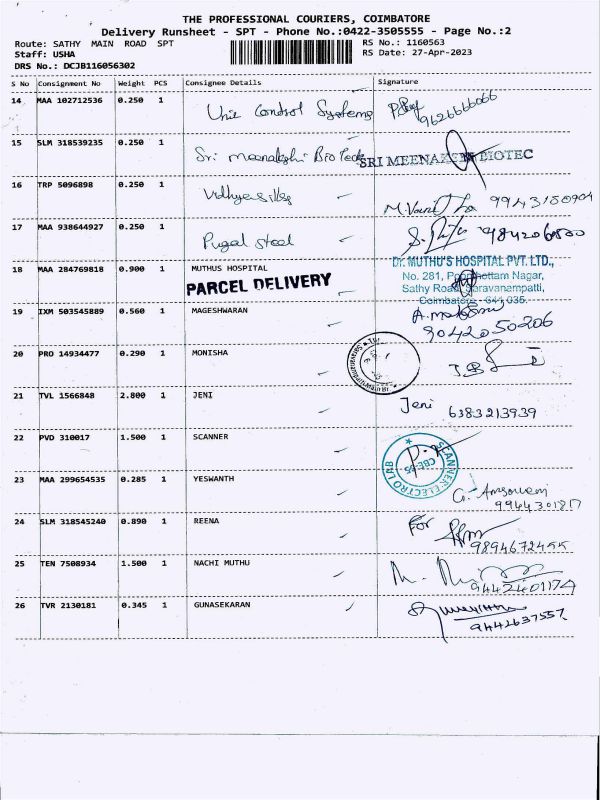 THE PROFESSIONAL COURIERS, COIMBATORE
Delivery Runsheet - SPT - Phone No.:0422-3505555 - Page No.:2
Route: SATHY MAIN ROAD SPT RS No.: 1160563
Staff: USHA RS Date: 27-Apr-2023
DRS No.: DCJB116056302
S No Consignment No Weight PCS Consignee Details Signature
14 MAA 102712536 0.250 1 Unic Control Systems
9626666066
15 SLM 318539235 0.250 1 Sri meenakshi Bio Teck SRI MEENAKSHI BIOTEC
16 TRP 5096898 0.250 1
17 MAA 938644927 0.250 1 Pugal steel
18 MAA 284769818 0.900 1 MUTHUS HOSPITAL
PARCEL DELIVERY
Dr. MUTHU'S HOSPITAL PVT. LTD.,
No. 281, Poonthottam Nagar,
Sathy Road, Saravanampatti,
Coimbatore - 641 035.
19 IXM 503545889 0.560 1 MAGESHWARAN
9042050206
20 PRO 14934477 0.290 1 MONISHA
21 TVL 1566848 2.800 1 JENI Jeni 6383213939
22 PVD 310017 1.500 1 SCANNER
SCANNER ELECTRO LAB
CBE-35
23 MAA 299654535 0.285 1 YESWANTH
24 SLM 318545240 0.890 1 REENA For
25 TEN 7508934 1.500 1 NACHI MUTHU
9442401174
26 TVR 2130181 0.345 1 GUNASEKARAN
9442637557